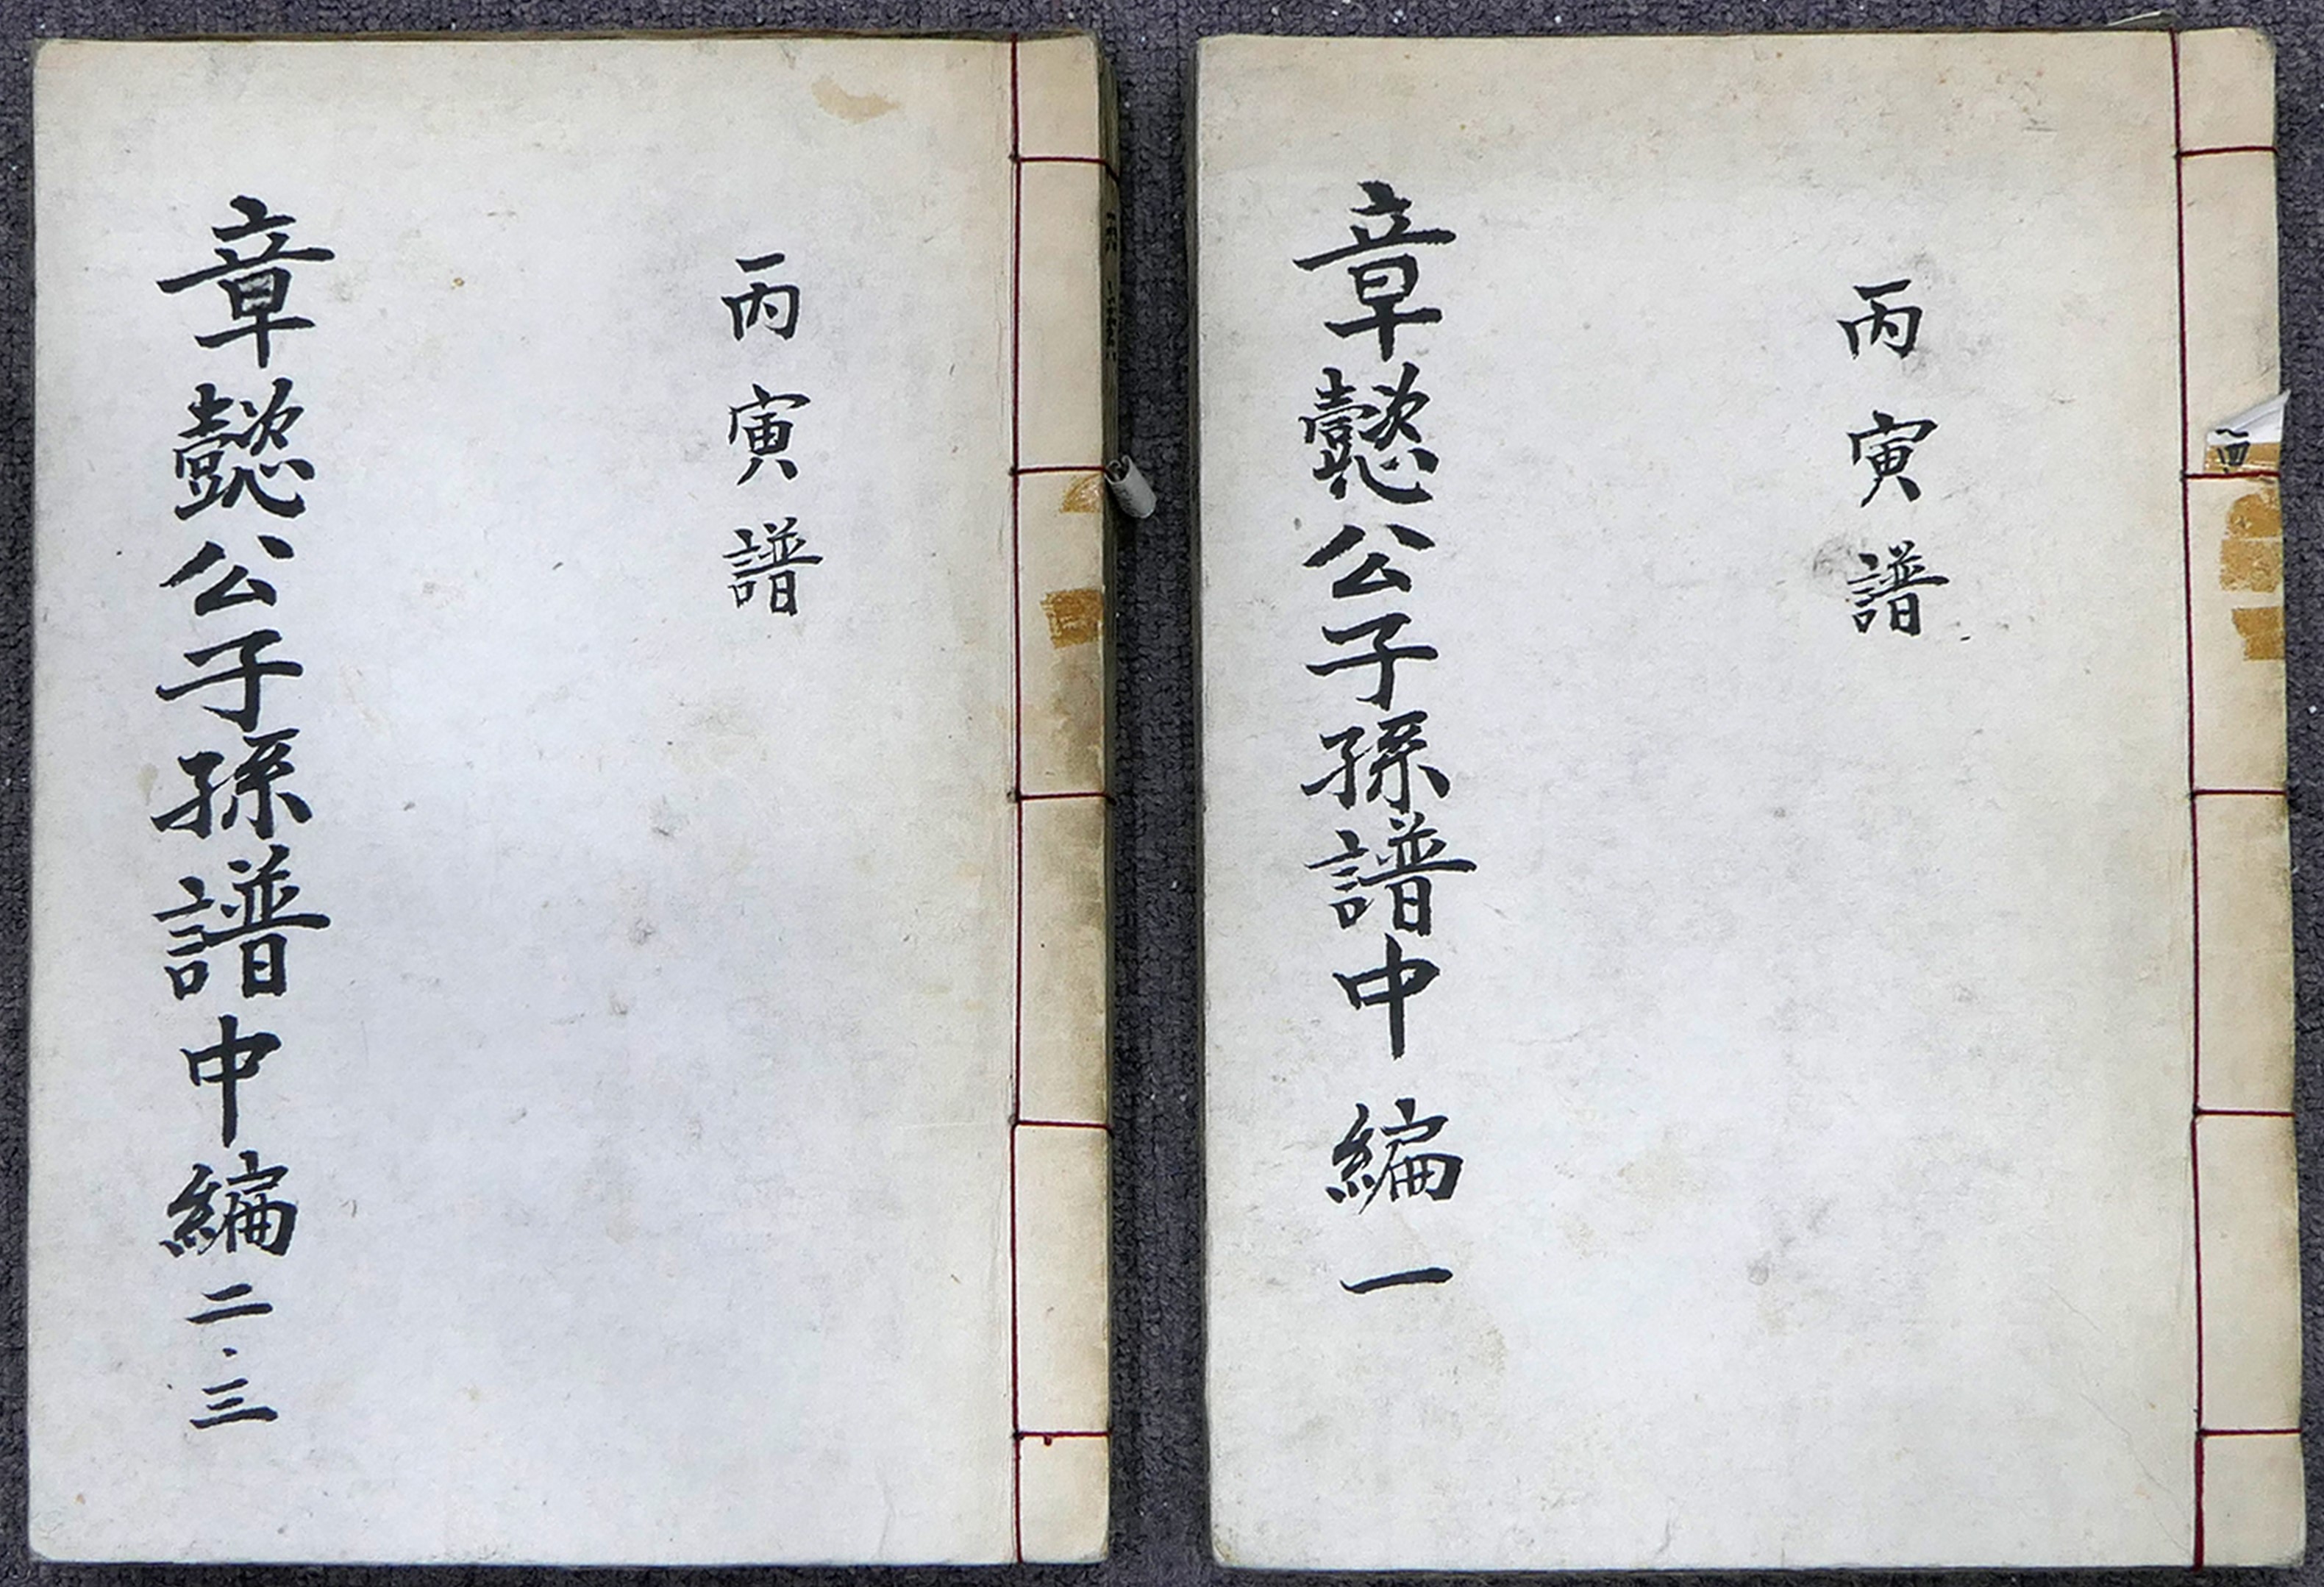 丙寅譜
章懿公子孫譜中編一
丙寅譜
章懿公子孫譜中編二·三